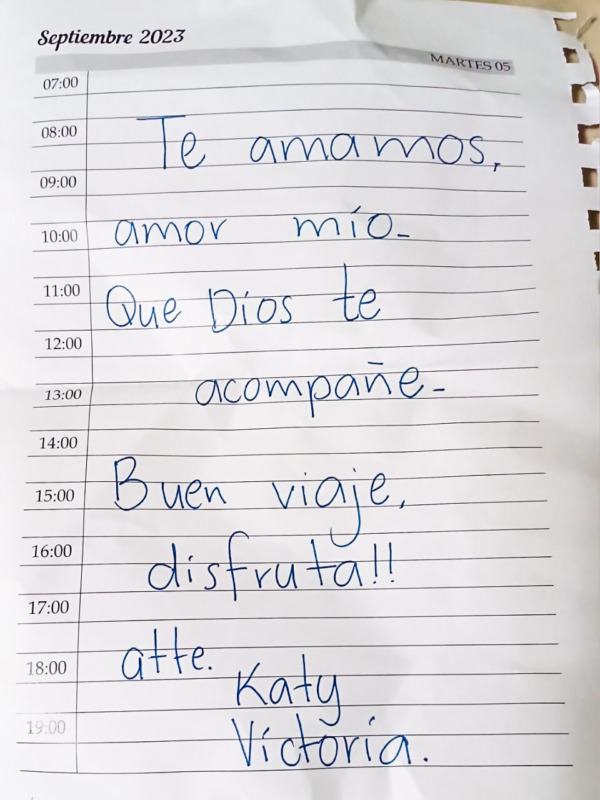 Septiembre 2023
MARTES 05
07:00
08:00
Te amamos,
09:00
10:00
amor mío-
11:00
Que Dios te
12:00
13:00
acompañe-
14:00
15:00
Buen viaje,
16:00
disfruta!!
17:00
18:00
atte.
Katy
19:00
Victoria.